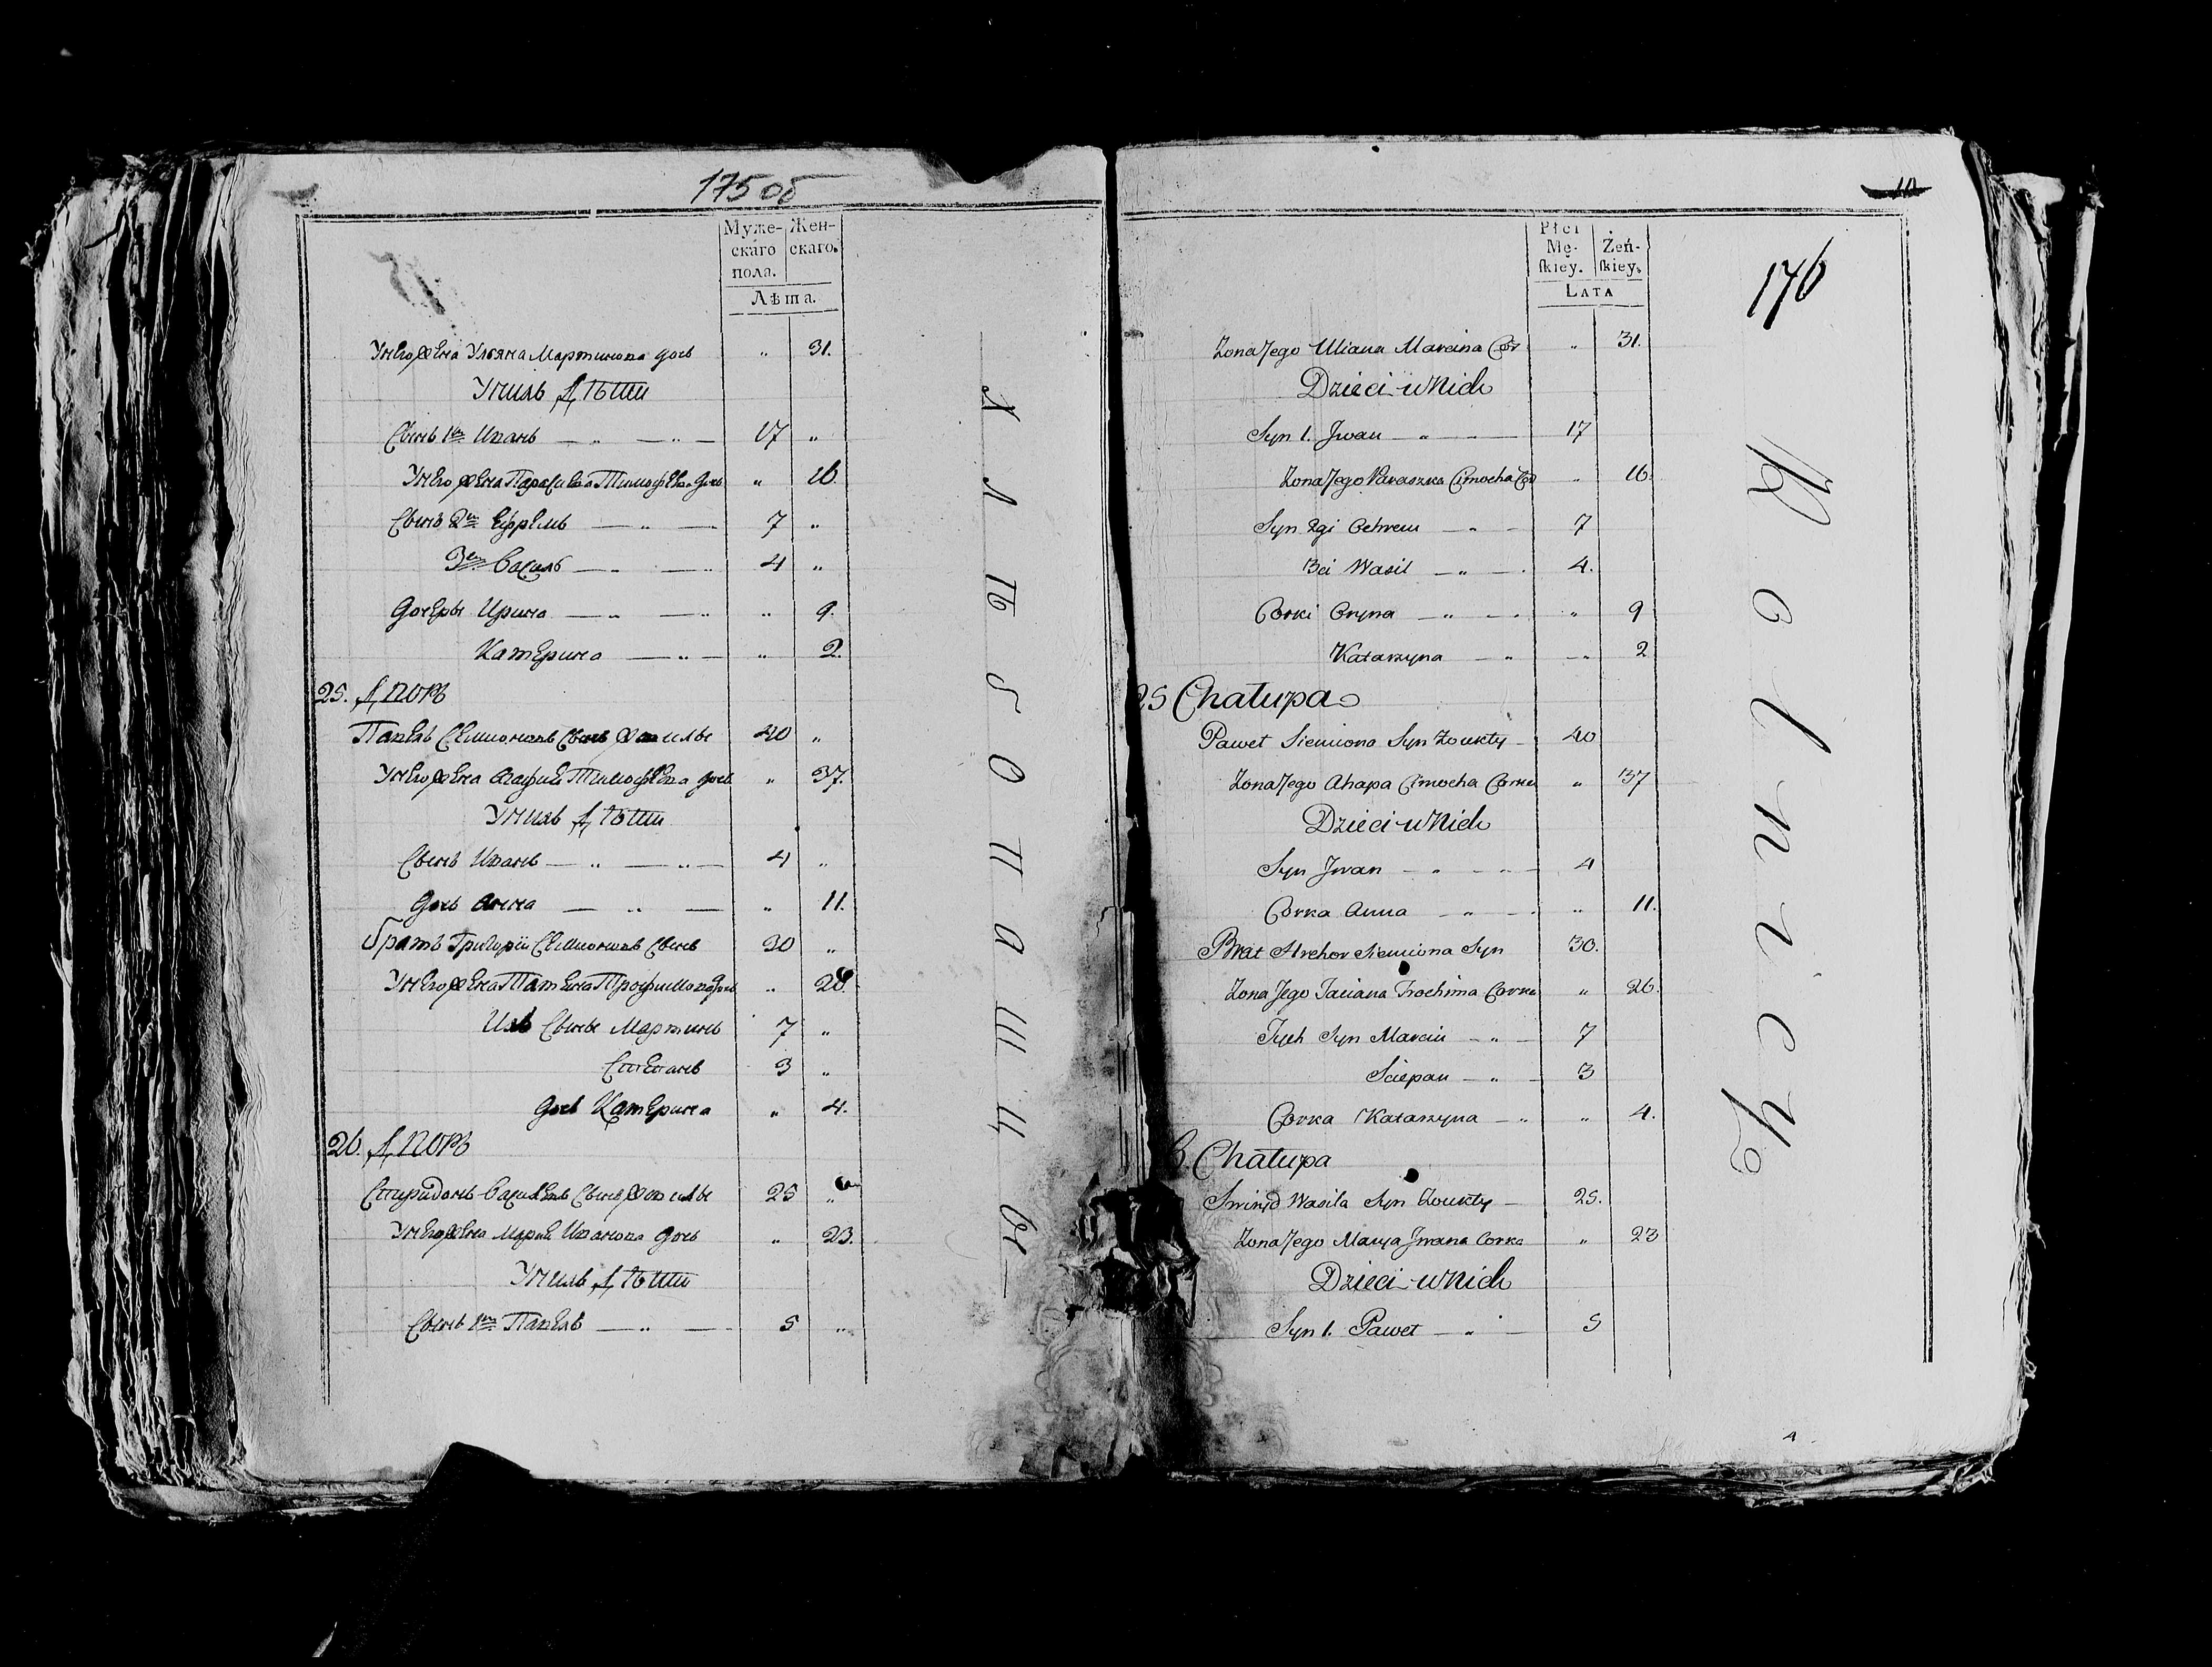 175 об
Муже- Жен-
скаго скаго.
пола.
Лѣта.
Унего жена Ульяна Мартинова дочь „ 31.
У нихъ Дѣти
Сынъ 1й Иванъ — „ — „ — 17 „
Унего жена Парасковa Тимофѣева дочь „ 16
Сынъ 2й Ефремъ — „ — 7 „
3й Василь — „ — „ 4 „
Дочери Ирина — „ — „ „ 9.
Катерина — „ — „ 2.
25. Дворъ
Павелъ Семионовъ Сынъ 40 „
Унего жена Агафия Тимофѣева дочь „ 37.
У нихъ Дѣти
Сынъ Иванъ — „ — „ — 4 „
Дочь Анна — „ — „ 11.
Братъ Григорий Семионовъ Сынъ 30 „
Унего жена Татьяна Трофимова дочь „ 26.
Ихъ Сыны Мартинъ 7 „
Степанъ 3 „
Дочь Катерина „ 4.
26. Дворъ
Спиридонъ Василевъ Сынъ 25 „
Унего жена Мария Иванова дочь „ 23.
У нихъ Дѣти
Сынъ 1й Павелъ — „ — 5 „
Хлѣбопашцы
Płci
Mę- Żeń-
ſkiey. ſkiey.
Lata
176
Zona Jego Uliana Marcina Cor „ 31.
Dzieci u Nich
Syn 1. Jwan — „ — 17
Zona Jego Paraszka Cimocha Cor „ 16.
Syn 2gi Ochrem — „ — 7
3ci Wasil — „ — 4.
Corki Oryna — „ — „ 9
Katarzyna — „ — „ 2
25 Chałupa
Paweł Siemiona Syn 40
Zona Jego Ahapa Cimocha Corka „ 37
Dzieci u Nich
Syn Jwan — „ — 4
Corka Anna — „ — „ 11.
Brat Hrehor Siemiona Syn 30.
Zona Jego Taciana Trochima Corka „ 26.
Tych Syn Marcin — „ — 7
Sciepan — „ — 3
Corka Katarzyna — „ „ 4.
6. Chałupa
Swiryd Wasila Syn — 25.
Zona Jego Marya Jwana Corka „ 23
Dzieci u Nich
Syn 1. Paweł — „ — 5
Rolnicy